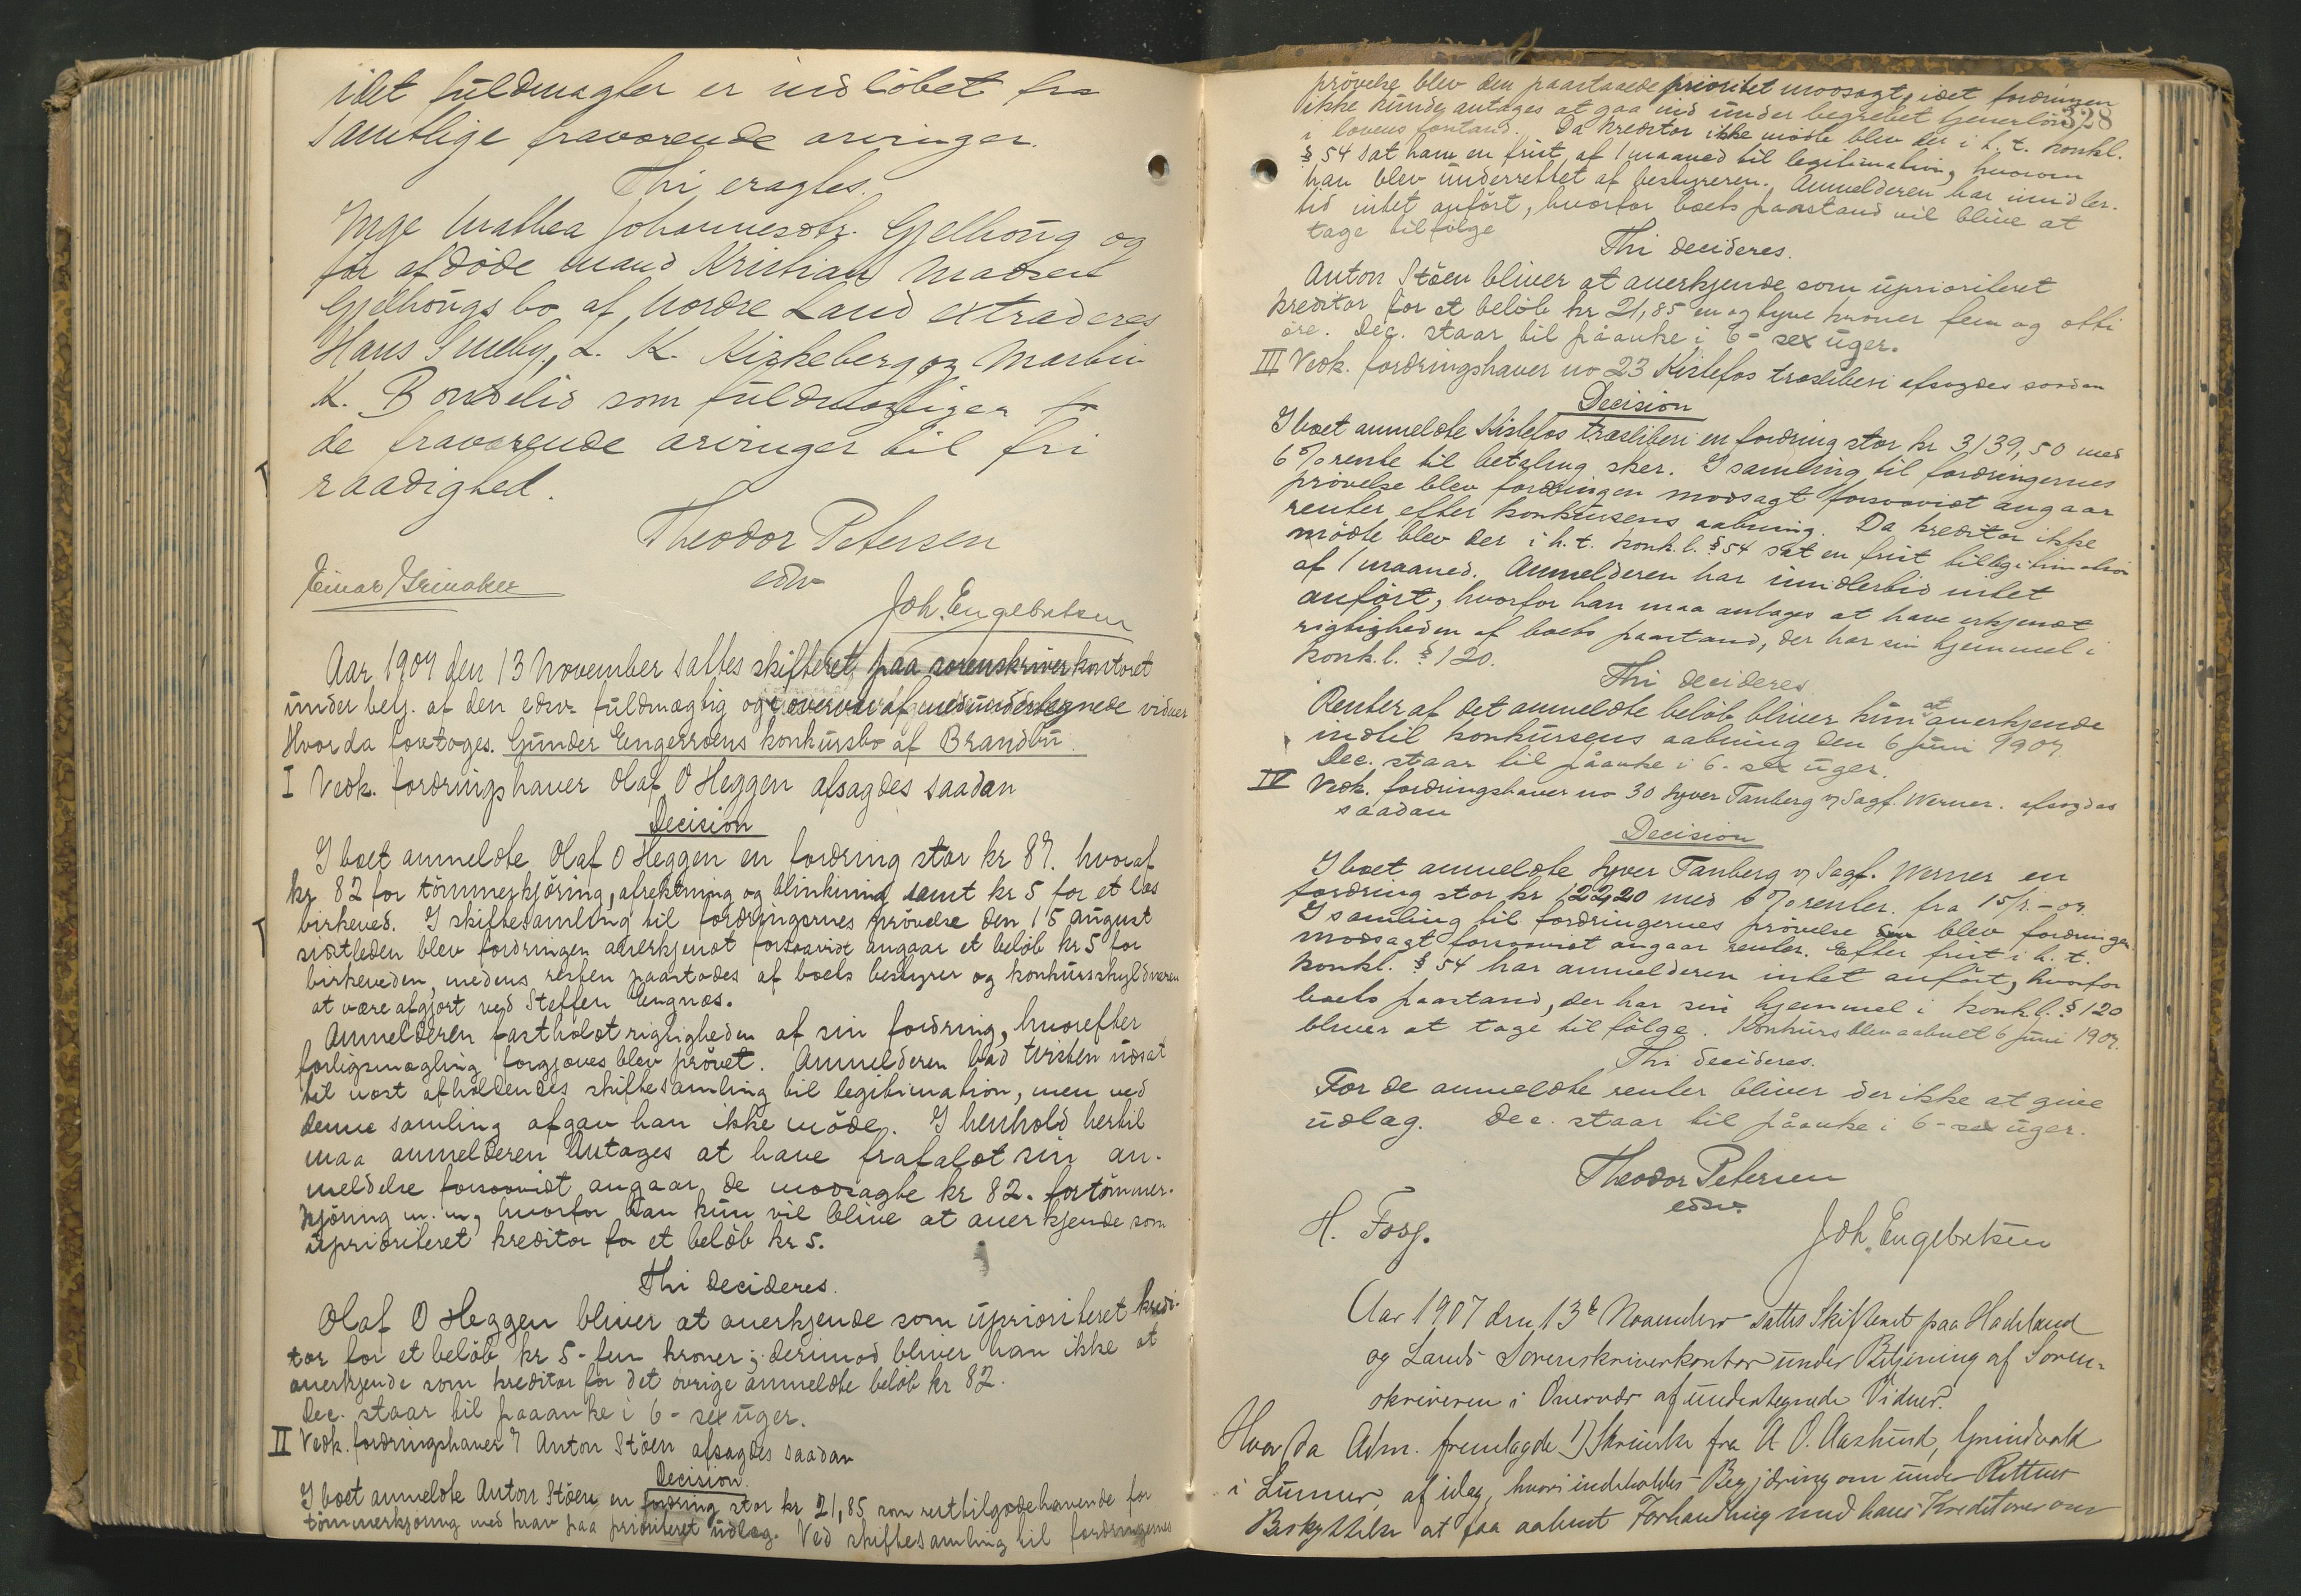 idet fuldmagter er indløbet fra
samtlige fraværende arvinger.
Thi eragtes.
Inge Mathea Johannesdtr. Gjelhoug og
før afdøde mand Kristian Madsen
Gjelhougs bo af Nordre Land extraderes
Hans Smeby, L. K. Kirkeberg og Martin
K. Bondelid som fuldmægtigen for
de fraværende arvinger til fri
raadighed.
Theodor Petersen
edsv
Einar Grinaker
Joh. Engebretsen
Aar 1907 den 13 November sattes skifteret paa sorenskriverkontoret
under betj. af den edsv. fuldmægtig og i overvær af medundertegnede vidner
Hvor da foretoges. Gunder Engerroens konkursbo af Brandbu.
I Vedk. fordringshaver Olaf O Heggen afsagdes saadan
Decision
I boet anmeldte Olaf O Heggen en fordring stor kr 87. hvoraf
kr 82 for tømmerkjøring, afrektning og blinkning samt kr 5 for et læs
birkeved. I skiftesamling til fordringernes prøvelse den 15 august
sidstleden blev fordringen anerkjendt forsaavidt angaar et beløb kr 5 for
birkeveden, medens resten paastodes af boets bestyrer og konkursskyldneren
at være afgjort ved Steffen Engnæs.
Anmelderen fastholdt rigtigheden af sin fordring, hvorefter
forligsmægling forgjæves blev prøvet. Anmelderen bad tvisten udsat
til næst afholdendes skiftesamling til legitimation, men ved
denne samling afgav han ikke møde. I henhold hertil
maa anmelderen antages at have frafaldt sin an-
meldelse forsaavidt angaar de modsagte kr 82. for tømmer-
kjøring m. m, hvorfor han kun vil blive at anerkjende som
uprioriteret kreditor for et beløb kr 5.
Thi decideres.
Olaf O Heggen bliver at anerkjende som uprioriteret kredi-
tor for et beløb kr 5 - fem kroner; derimod bliver han ikke at
anerkjende som kreditor for det øvrige anmeldte beløb kr 82.
Dec. staar til paaanke i 6 - sex uger.
II Vedk. fordringshaver 7 Anton Støen afsagdes saadan
Decision
I boet anmeldte Anton Støen en fordring stor kr 21,85 som resttilgodehavende for
tømmerkjøring med krav paa prioriteret udlæg. Ved skiftesamling til fordringernes
328
prøvelse blev den paastaaede prioritet modsagt, idet fordringen
ikke kunde antages at gaa ind under begrebet tjenerløn
i lovens forstand. Da kreditor ikke mødte blev der i h. t. konkl.
§ 54 sat ham en frist af 1 maaned til legitimation, hvorom
han blev underrettet af bestyreren. Anmelderen har imidler-
tid intet anført, hvorfor boets paastand vil blive at
tage tilfølge
Thi decideres.
Anton Støen bliver at anerkjende som uprioriteret
kreditor for et beløb kr 21,85 en og tyve kroner fem og otti
øre. Dec. staar til påanke i 6 - sex uger.
III Vedk. fordringshaver no 23 Kistefos træsliberi afsagdes saadan
Decision
I boet anmeldte Kistefos træsliberi en fordring stor kr 3139,50 med
6 % rente til betaling sker. I samling til fordringernes
prøvelse blev fordringen modsagt forsaavidt angaar
renter efter konkursens aabning. Da kreditor ikke
mødte blev der i h. t. konk. l. § 54 sat en frist til legitimation
af 1 maaned. Anmelderen har imidlertid intet
anført, hvorfor han maa antages at have erkjendt
rigtigheden af boets paastand, der har sin hjemmel i
konk. l. § 120.
Thi decideres
Renter af det anmeldte beløb bliver kun at anerkjende
indtil konkursens aabning den 6 juni 1907
Dec. staar til påanke i 6 - sex uger.
IV Vedk. fordringshaver no 30 Syver Tanberg v/ Sagf. Werner. afsagdes
saadan
Decision
I boet anmeldte Syver Tanberg v/ Sagf. Werner en
fordring stor kr 122,20 med 6 % renter. fra
I samling til fordringernes prøvelse blev fordringen
modsagt forsaavidt angaar renter. Efter frist i h. t.
konkl. § 54 har anmelderen intet anført, hvorfor
boets paastand, der har sin hjemmel i konk. l. § 120
bliver at tage til følge. Konkurs blev aabnet 6 juni 1907.
Thi decideres.
For de anmeldte renter bliver der ikke at give
udlæg. Dec. staar til påanke i 6 - sex uger.
Theodor Petersen
edsv.
H. Foss.
Joh. Engebretsen
Aar 1907 den 13de November sattes Skifteret paa Hadeland
og Lands Sorenskriverkontor under Betjening af Soren-
skriveren i Overvær af undertegnede Vidner.
Hvor da Adm. fremlagde 1) Skrivelse fra A. O. Aashund, Grindvold
i Lunner, af idag, hvori indeholdes Begjæring om under Rettens
Beskyttelse at faa aabnet Forhandling med hans Kreditorer om